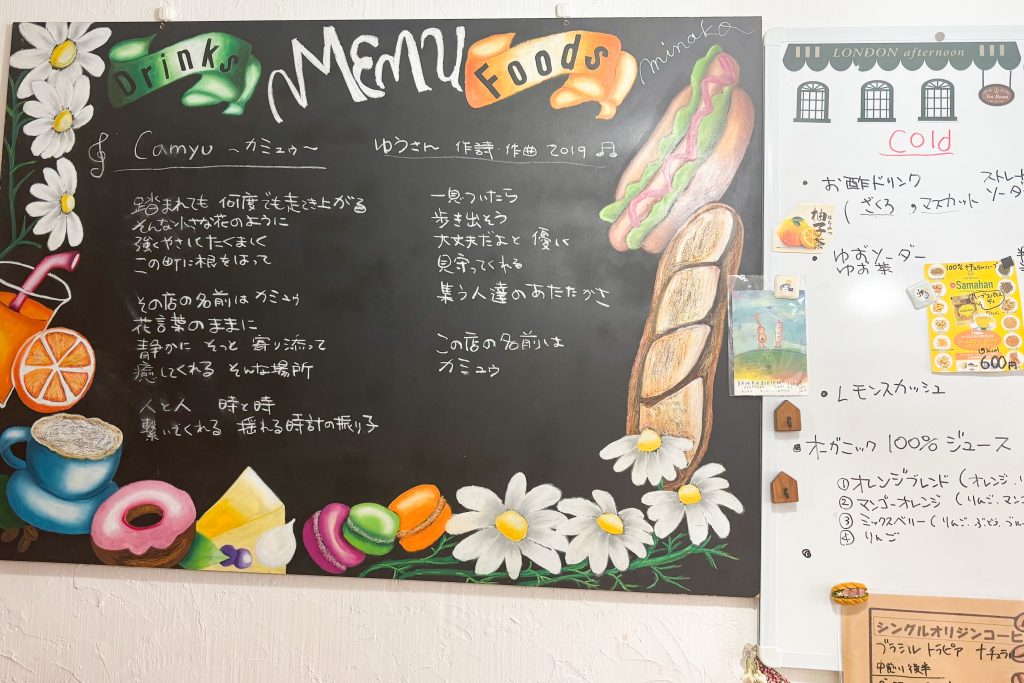 Drinks
MENU
Foods
minako
Camyu ～カミュゥ～
ゆうさん 作詩・作曲 2019
踏まれても 何度でも起き上がる
そんな小さな花のように
強くやさしくたくましく
この町に根をはって
その店の名前は カミュゥ
花言葉のままに
静かに そっと 寄り添って
癒してくれる そんな場所
人と人 時と時
繋いでくれる 揺れる時計の振り子
一息ついたら
歩き出そう
大丈夫だよと 優しく
見守ってくれる
集う人達のあたたかさ
この店の名前は
カミュゥ
LONDON afternoon
Tea Room
Cold
・お酢ドリンク
(ざくろ , マスカット
ストレー
ソーダ
はちみつ
柚子茶
・ゆずソーダー
ゆず茶
100% ナチュラルハーブ
Samahan
15kcal
600円
・レモンスカッシュ
・オーガニック 100% ジュース
①オレンジブレンド (オレンジ、リ
②マンゴーオレンジ (りんご、マン
③ミックスベリー (りんご、ぶどう、ブル
④りんご
シングルオリジンコーヒ
ブラジル トラピア ナチュラル
中煎り後半